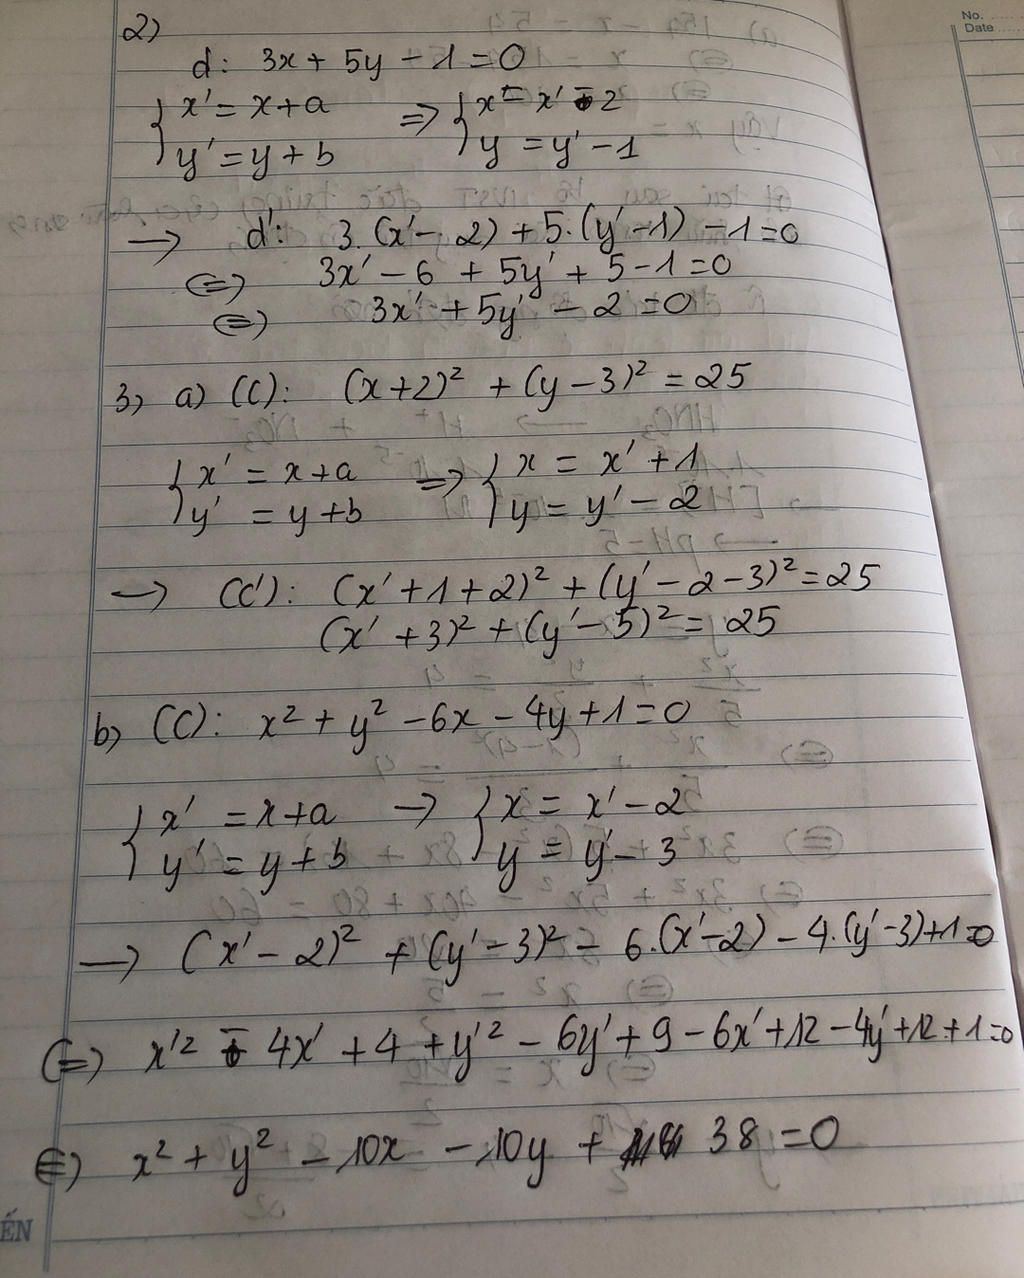 No.
Date
2)
d: 3x + 5y - 1 = 0
{ x' = x + a => { x = x' - 2
{ y' = y + b { y = y' - 1
-> d': 3.(x' - 2) + 5.(y' - 1) - 1 = 0
<=> 3x' - 6 + 5y' + 5 - 1 = 0
<=> 3x' + 5y' - 2 = 0
3, a) (C): (x+2)² + (y-3)² = 25
{ x' = x + a => { x = x' + 1
{ y' = y + b { y = y' - 2
-> (C'): (x' + 1 + 2)² + (y' - 2 - 3)² = 25
(x' + 3)² + (y' - 5)² = 25
b, (C): x² + y² - 6x - 4y + 1 = 0
{ x' = x + a -> { x = x' - 2
{ y' = y + b { y = y' - 3
-> (x' - 2)² + (y' - 3)² - 6.(x' - 2) - 4.(y' - 3) + 1 = 0
<=> x'² - 4x' + 4 + y'² - 6y' + 9 - 6x' + 12 - 4y' + 12 + 1 = 0
<=> x² + y² - 10x - 10y + 38 = 0
ẾN